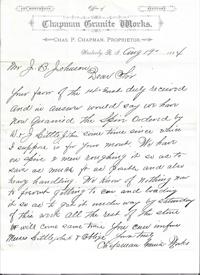 Office of
Chapman Granite Works.
CHAS. P. CHAPMAN, PROPRIETOR.
Westerly, R. I. Aug 19th 1884
Mr. J. B. Johnson
Dear Sir
Your favor of the 14th inst duly received
and in answer would say we have
now Quarried the Spire Ordered by
D. & J. Littlefield some time since which
I suppose is for your mont. We have
on spire & men roughing it so as to
save as much ft as possible and also
heavy handling. We know of nothing now
to prevent getting to car and loading
it so as to get it under way by Saturday
of this week all the rest of the stone
will come same time You can inform
Messrs Littlefield &
Yours Truly
Chapman Granite Works